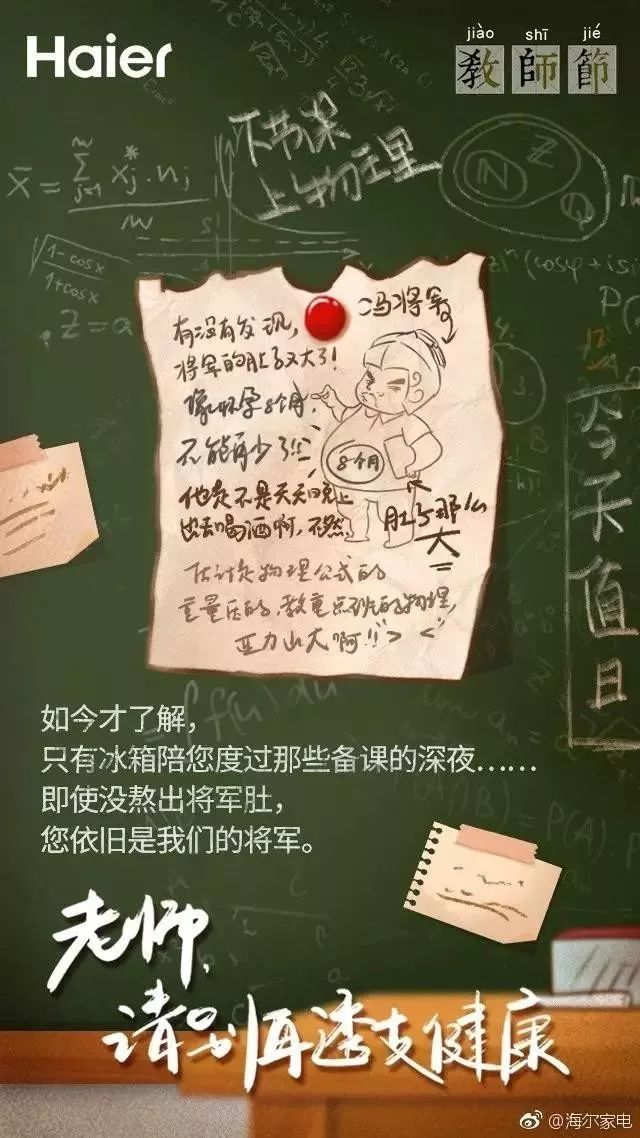 Haier
jiào shī jié
教師節
下节课
上物理
有没有发现,
将军的肚子又大了!
像怀孕8个月,
不能再少了!!
他是不是天天晚上
出去喝酒啊,不然
冯将军
8个月
肚子那么
大
估计是物理公式的
重量压的,教重点班的物理,
压力山大啊!!
今天值日
N
Z
Q
如今才了解,
只有冰箱陪您度过那些备课的深夜……
即使没熬出将军肚,
您依旧是我们的将军。
老师,
请别再透支健康
@海尔家电